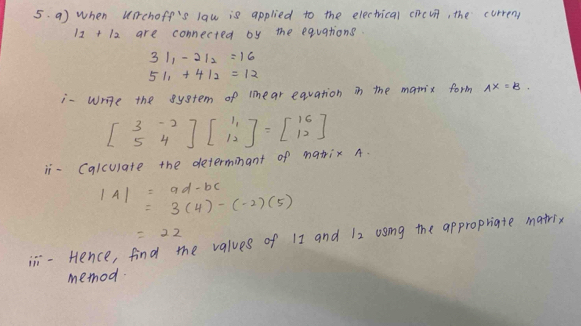 5. a) When Kirchoff's law is applied to the electrical circuit, the current
I1 + I2 are connected by the equations.
3I1 - 2I2 = 16
5I1 + 4I2 = 12
i- Write the system of linear equation in the matrix form AX = B.
[3 -2
5 4] [I1
I2] = [16
12]
ii- Calculate the determinant of matrix A.
|A| = ad-bc
= 3(4) - (-2)(5)
= 22
iii- Hence, find the values of I1 and I2 using the appropriate matrix
method.